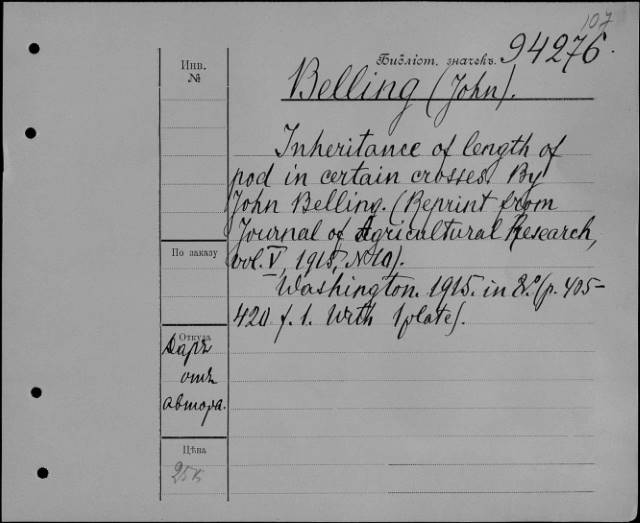 107
Библіот. значекъ. 94276.
Инв.
№
Belling (John).
Inheritance of length of
pod in certain crosses. By
John Belling. (Reprint from
Journal of Agricultural Research,
vol. V, 1915, N10).
Washington. 1915. in 8.º (p. 405-
420 f. 1. With 1 plate).
По заказу
Откуда
Даръ
отъ
автора.
Цѣна
25к